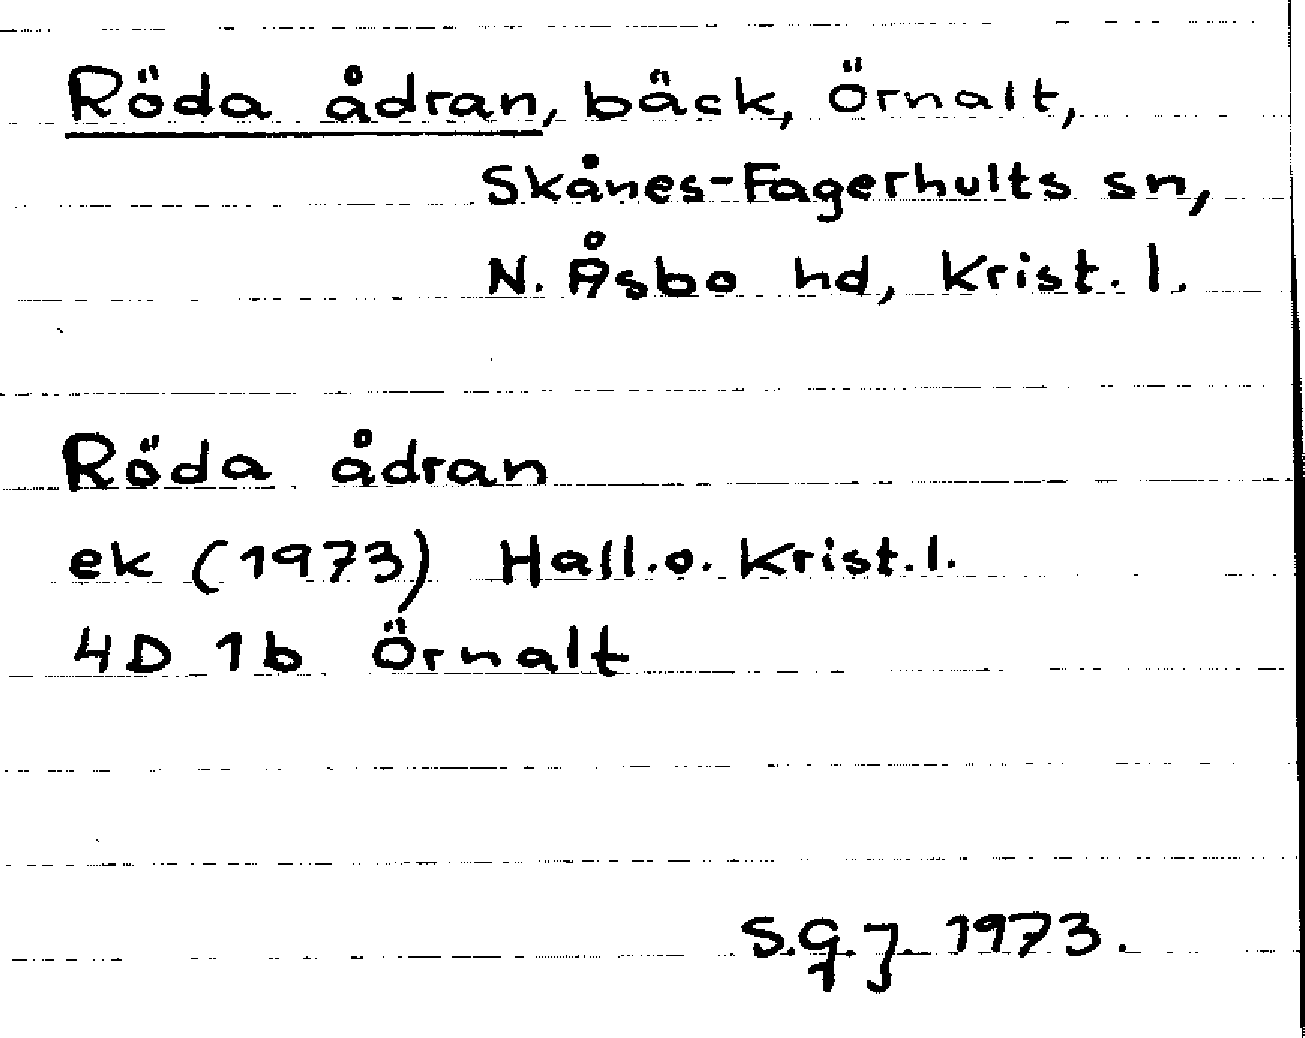 Röda ådran, bäck, Örnalt,
Skånes-Fagerhults sn,
N. Åsbo hd, Krist. l.
Röda ådran
ek (1973) Hall.o. Krist.l.
4D 1b Örnalt
S.G.J. 1973.